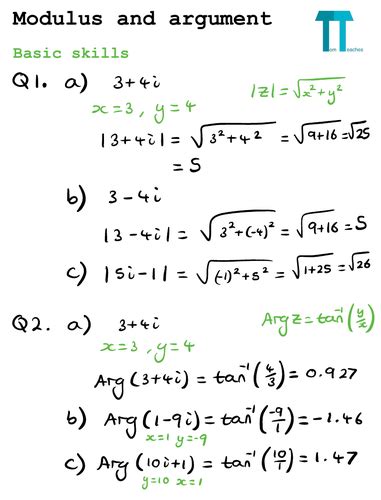 Modulus and argument
Tom Teaches
Basic skills
Q1. a) 3+4i
|z| = √(x²+y²)
x=3, y=4
|3+4i| = √(3²+4²) = √(9+16) = √25
= 5
b) 3-4i
|3-4i| = √(3²+(-4)²) = √(9+16) = 5
c) |5i-1| = √((-1)²+5²) = √(1+25) = √26
Q2. a) 3+4i
Arg z = tan⁻¹(y/x)
x=3, y=4
Arg(3+4i) = tan⁻¹(4/3) = 0.927
b) Arg(1-9i) = tan⁻¹(-9/1) = -1.46
x=1 y=-9
c) Arg(10i+1) = tan⁻¹(10/1) = 1.47
y=10 x=1